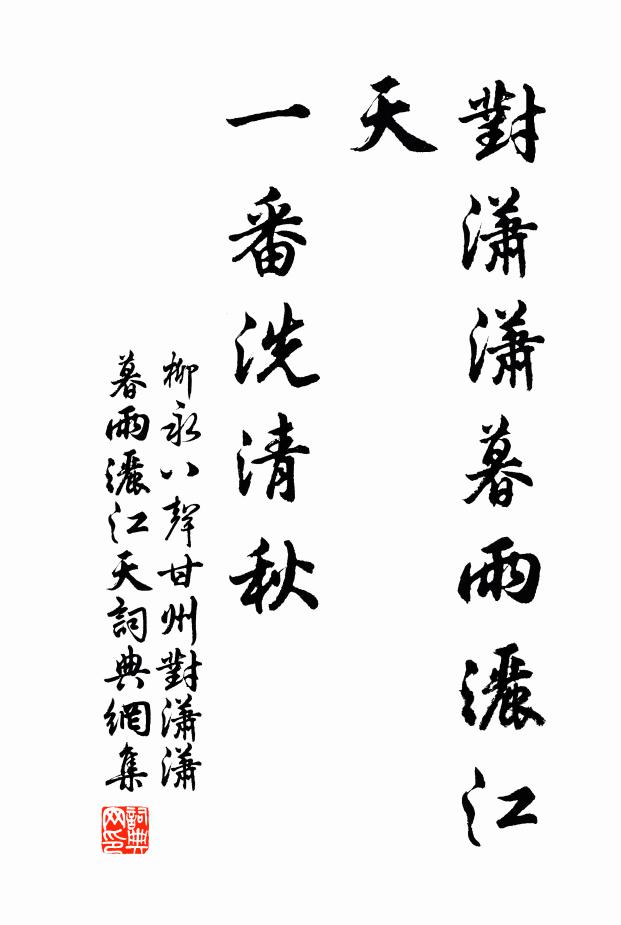 對瀟瀟暮雨灑江
天
一番洗清秋
柳永八聲甘州對瀟瀟
暮雨灑江天詞典網集
詞典
网印